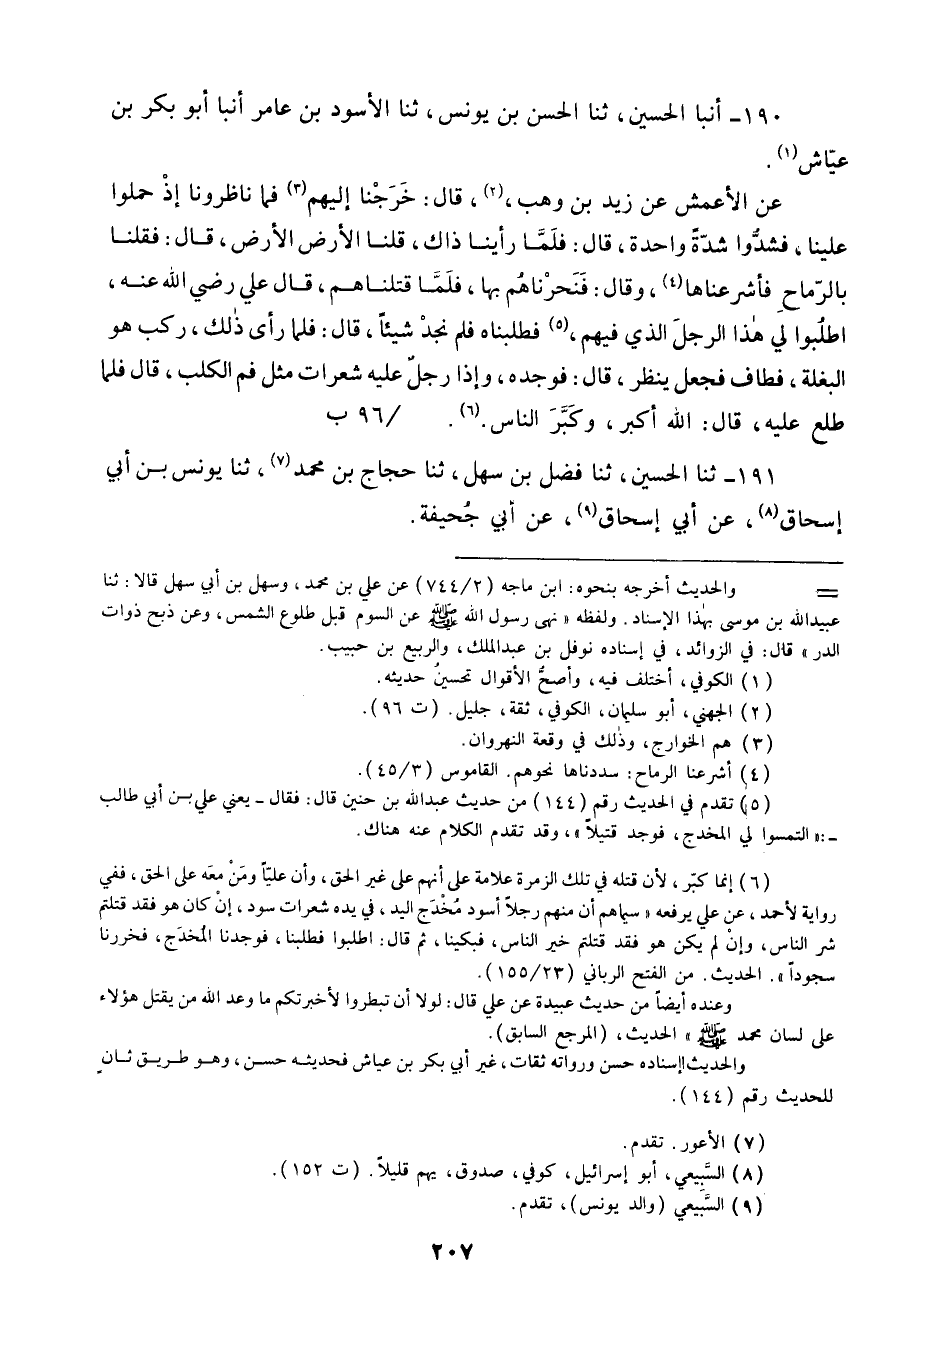 ١٩٠ـ أنبا الحسين، ثنا الحسن بن يونس، ثنا الأسود بن عامر أنبا أبو بكر بن
عيّاش(١).
عن الأعمش عن زيد بن وهب،(٢)، قال: خَرَجْنا إليهم(٣) فما ناظرونا إذْ حملوا
علينا، فشدُّوا شدّةً واحدة، قال: فلَمَّا رأينا ذاك، قلنا الأرض الأرض، قال: فقلنا
بالرّماحِ فأشرعناها(٤)، وقال: فَنَحرْناهُم بها، فلَمَّا قتلناهم، قال علي رضي الله عنه،
اطلُبوا لي هٰذا الرجلَ الذي فيهم،(٥) فطلبناه فلم نجدْ شيئاً، قال: فلما رأى ذٰلك، ركب هو
البغلة، فطاف فجعل ينظر، قال: فوجده، وإذا رجلٌ عليه شعرات مثل فم الكلب، قال فلما
طلع عليه، قال: الله أكبر، وكَبَّرَ الناس.(٦). /٩٦ ب
١٩١ـ ثنا الحسين، ثنا فضل بن سهل، ثنا حجاج بن محمد(٧)، ثنا يونس بن أبي
إسحاق(٨)، عن أبي إسحاق(٩)، عن أبي جُحيفة.
= والحديث أخرجه بنحوه: ابن ماجه (٧٤٤/٢) عن علي بن محمد، وسهل بن أبي سهل قالا: ثنا
عبيدالله بن موسى بهٰذا الإسناد. ولفظه «نهى رسول الله ﷺ عن السوم قبل طلوع الشمس، وعن ذبح ذوات
الدر» قال: في الزوائد، في إسناده نوفل بن عبدالملك، والربيع بن حبيب.
(١) الكوفي، أختلف فيه، وأصحُّ الأقوال تحسينُ حديثه.
(٢) الجهني، أبو سليمان، الكوفي، ثقة، جليل. (ت ٩٦).
(٣) هم الخوارج، وذٰلك في وقعة النهروان.
(٤) أشرعنا الرماح: سددناها نحوهم. القاموس (٤٥/٣).
(٥) تقدم في الحديث رقم (١٤٤) من حديث عبدالله بن حنين قال: فقال ـ يعني علي بن أبي طالب
ـ:« التمسوا لي المخدج، فوجد قتيلاً»، وقد تقدم الكلام عنه هناك.
(٦) إنما كبّر، لأن قتله في تلك الزمرة علامة على أنهم على غير الحق، وأن عليّاً ومَنْ معَه على الحق، ففي
رواية لأحمد، عن علي يرفعه «سيماهم أن منهم رجلاً أسود مُخْدَج اليد، في يده شعرات سود، إنْ كان هو فقد قتلتم
شر الناس، وإنْ لم يكن هو فقد قتلتم خير الناس، فبكينا، ثم قال: اطلبوا فطلبنا، فوجدنا المُخدَج، فخررنا
سجوداً». الحديث. من الفتح الرباني (١٥٥/٢٣).
وعنده أيضاً من حديث عبيدة عن علي قال: لولا أن تبطروا لأخبرتكم ما وعد الله من يقتل هؤلاء
على لسان محمد ﷺ» الحديث، (المرجع السابق).
والحديث إسناده حسن ورواته ثقات، غير أبي بكر بن عياش فحديثه حسن، وهو طريق ثانٍ
للحديث رقم (١٤٤).
(٧) الأعور. تقدم.
(٨) السَّبِيعي، أبو إسرائيل، كوفي، صدوق، يهم قليلاً. (ت ١٥٢).
(٩) السَّبِيعي (والد يونس)، تقدم.
٢٠٧